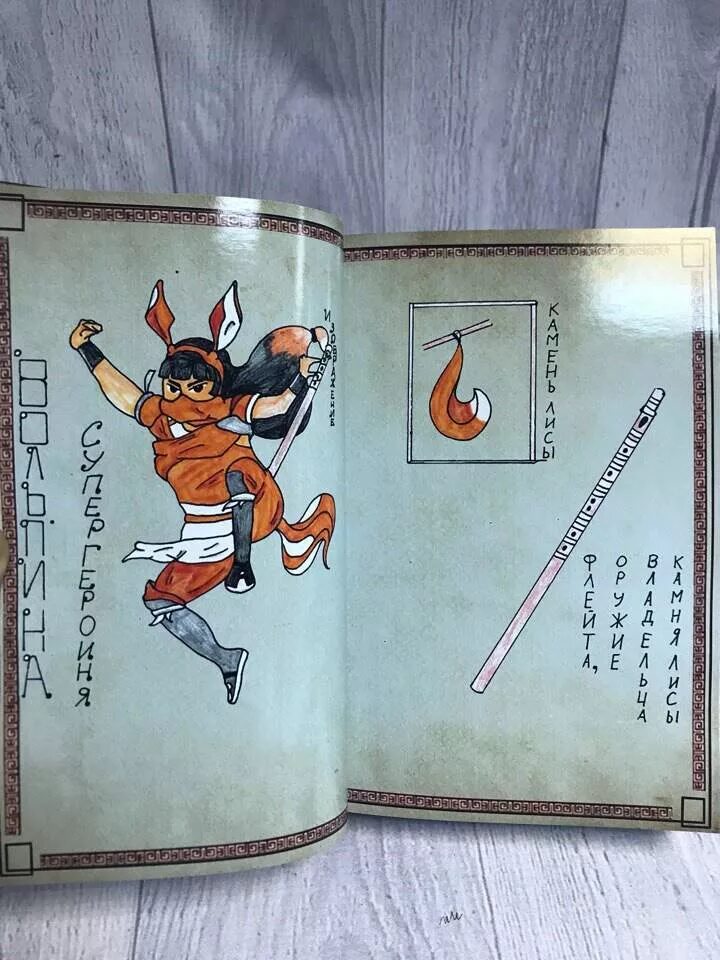 ВОЛЬПИНА
СУПЕРГЕРОИНЯ
ИЗОБРАЖЕНИЕ
КАМЕНЬ ЛИСЫ
ФЛЕЙТА,
ОРУЖИЕ
ВЛАДЕЛЬЦА
КАМНЯ ЛИСЫ